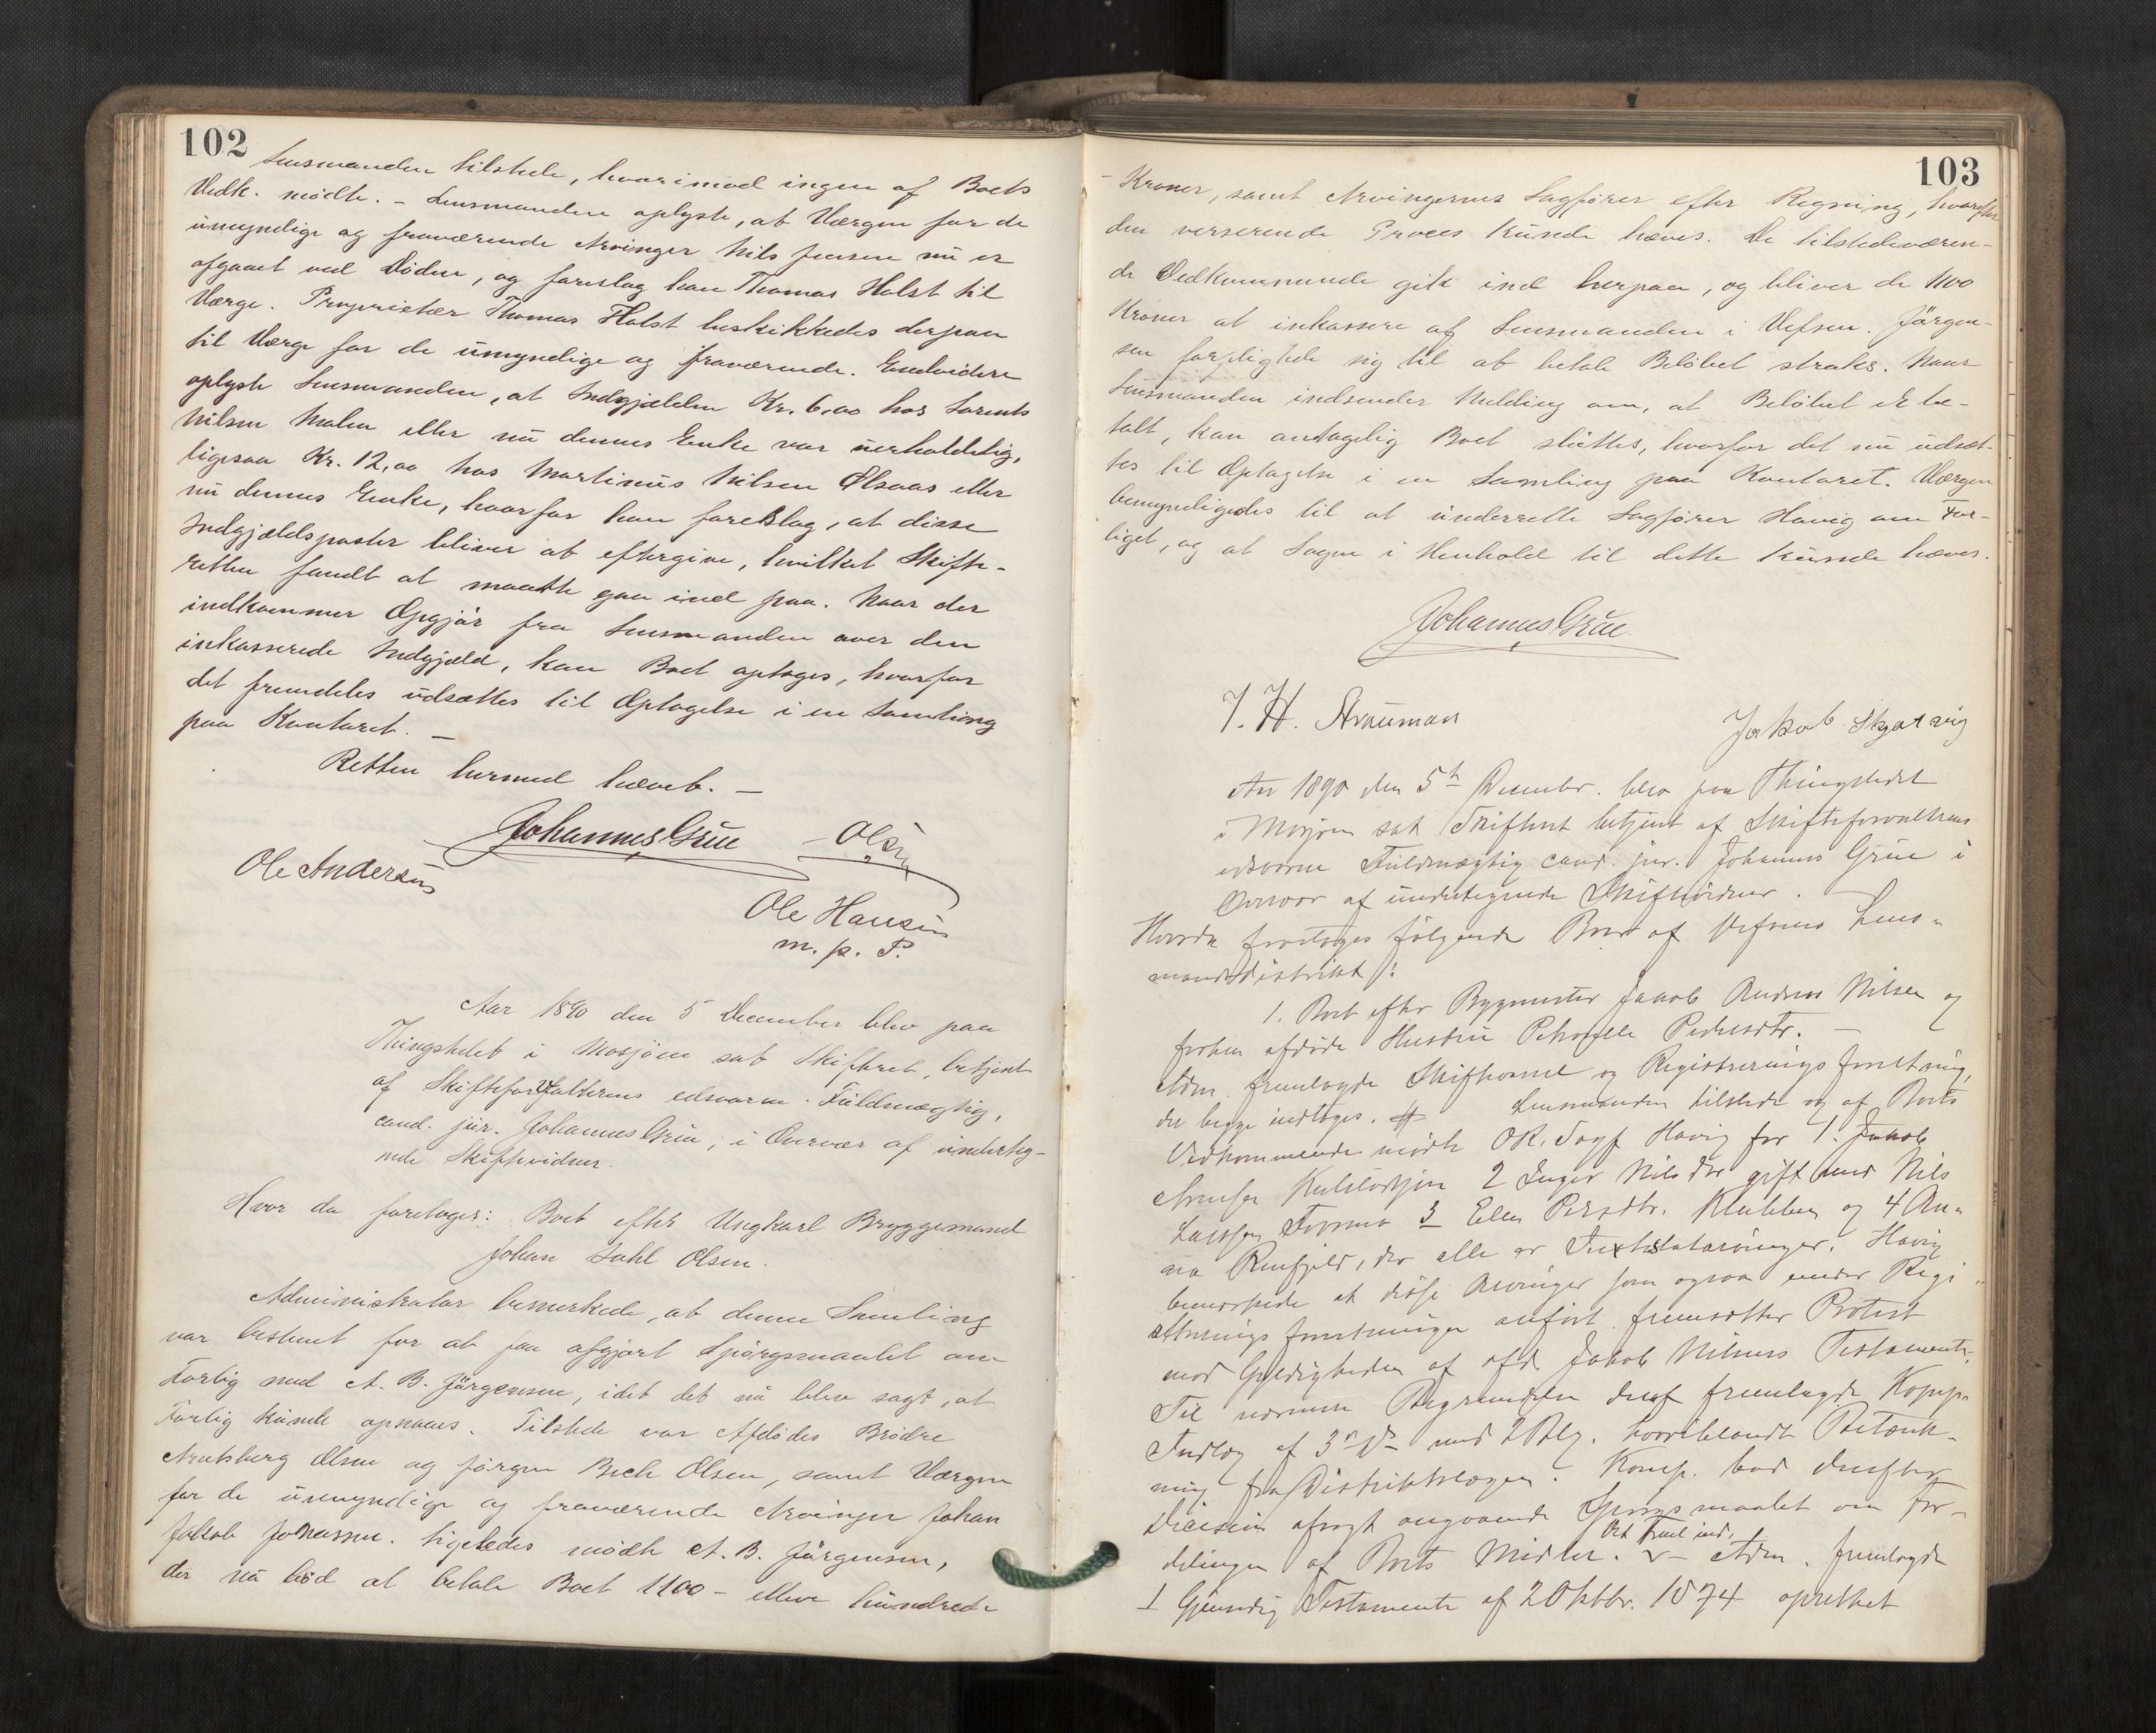 102
Lensmanden tilstede, hvorimod ingen af Boets
Vedk. mødte. – Lensmanden oplyste, at Værgen for de
umyndige og fraværende Arvinger Nils Jensen nu er
afgaaet ved Døden, og foreslog han Thomas Holst til
Værge. Proprietær Thomas Holst beskikkedes derpaa
til Værge for de umyndige og fraværende. Endvidere
oplyste Lensmanden, at Indgjælden Kr. 6,00 hos Lorents
Nilsen Malen eller nu dennes Enke var uerholdelig,
ligesaa Kr. 12,00 hos Martinus Nilsen Olsaas eller
nu dennes Enke, hvorfor han foreslog, at disse
Indgjældsposter bliver at eftergive, hvilket Skifte-
retten fandt at maatte gaa ind paa. Naar der
indkommer Opgjør fra Lensmanden over den
inkasserede Indgjæld, kan Boet optages, hvorfor
det fremdeles udsættes til Optagelse i en Samling
paa Kontoret. –
Retten hermed hævet. –
Johannes Grüe Olsen
Ole Andersen
Ole Hansen
m. p. P.
Aar 1890 den 5 December blev paa
Thingstedet i Mosjøen sat Skifteret, betjent
af Skifteforvalterens edsvorne Fuldmægtig,
cand. jur. Johannes Grüe, i Overvær af underteg-
nede Skiftevidner.
Hvor da foretoges: Boet efter Ungkarl Bryggemand
Johan Dahl Olsen.
Administrator bemerkede, at denne Samling
var bestemt for at faa afgjort Spørgsmaalet om
Forlig med A. B. Jörgensen, idet det nu blev sagt, at
Forlig kunde opnaaes. Tilstede var Afdødes Brødre
Arntsberg Olsen og Jörgen Bech Olsen, samt Værgen
for de umyndige og fraværende Arvinger Johan
Jakob Jonassen. Ligeledes mødte A. B. Jörgensen,
der nu bød at betale Boet 1100 – elleve hundrede
103
– Kroner, samt Arvingernes Sagfører efter Regning, hvorefter
den verserende Proces kunde hæves. De tilstedeværen-
de Vedkommende gik ind herpaa, og bliver de 1100
Kroner at inkassere af Lensmanden i Vefsen. Jörgen-
sen forpligtede sig til at betale Beløbet straks. Naar
Lensmanden indsender Melding om, at Beløbet er be-
talt, kan antagelig Boet sluttes, hvorfor det nu udsæt-
tes til Optagelse i en Samling paa Kontoret. Værgen
bemyndigedes til at underrette Sagfører Havig om For-
liget, og at Sagen i Henhold til dette kunde hæves.
Johannes Grüe
J. H. Strauman
Jakob Skjærvig
Aar 1890 den 5te Decembr. blev paa Thingstedet
i Mosjøen sat Skifteret betjent af Skifteforvalterens
edsvorne Fuldmægtig cand. jur. Johannes Grüe i
Overvær af undertegnede Skiftevidner.
Hvorda foretoges følgende Boer af Vefsens Lens-
mandsdistrikt:
1. Boet efter Bygmester Jakob Andreas Nilsen og
forhen afdøde Hustru Petronelle Pedersdtr. –
Adm. fremlagde Skiftekonvol og Registreringsforretning,
der begge indtoges. Lensmanden tilstede og af Boets
Vedkommende mødte OR. Sagf Havig for 1. Jakob
Arntsen Kulstadsjøen 2 Inger Nilsdtr gift med Nils
Larssen 3 Ellen Persdtr. Klubben og 4 An-
na Renfjeld, der alle er Intestatarvinger. Havig
bemærkede at disse Arvinger som ogsaa under Regi-
streringsforretningen anført fremsætter Protest
mod Gyldigheden af afd. Jakob Nilsens Testamente.
Til nærmere Begrundelse deraf fremlagde Komp.
Indlæg af 3die ds. med 2 Bilg. hvoriblandt Betænk-
ning fra Distriktslægen. Komp. bad derefter
Decision afsagt angaaende Spørgsmaalet om For-
delingen af Boets Midler. Det toges ind. – Adm. fremlagde
1 Gjensidig Testamente af 2 Oktbr. 1874 oprettet